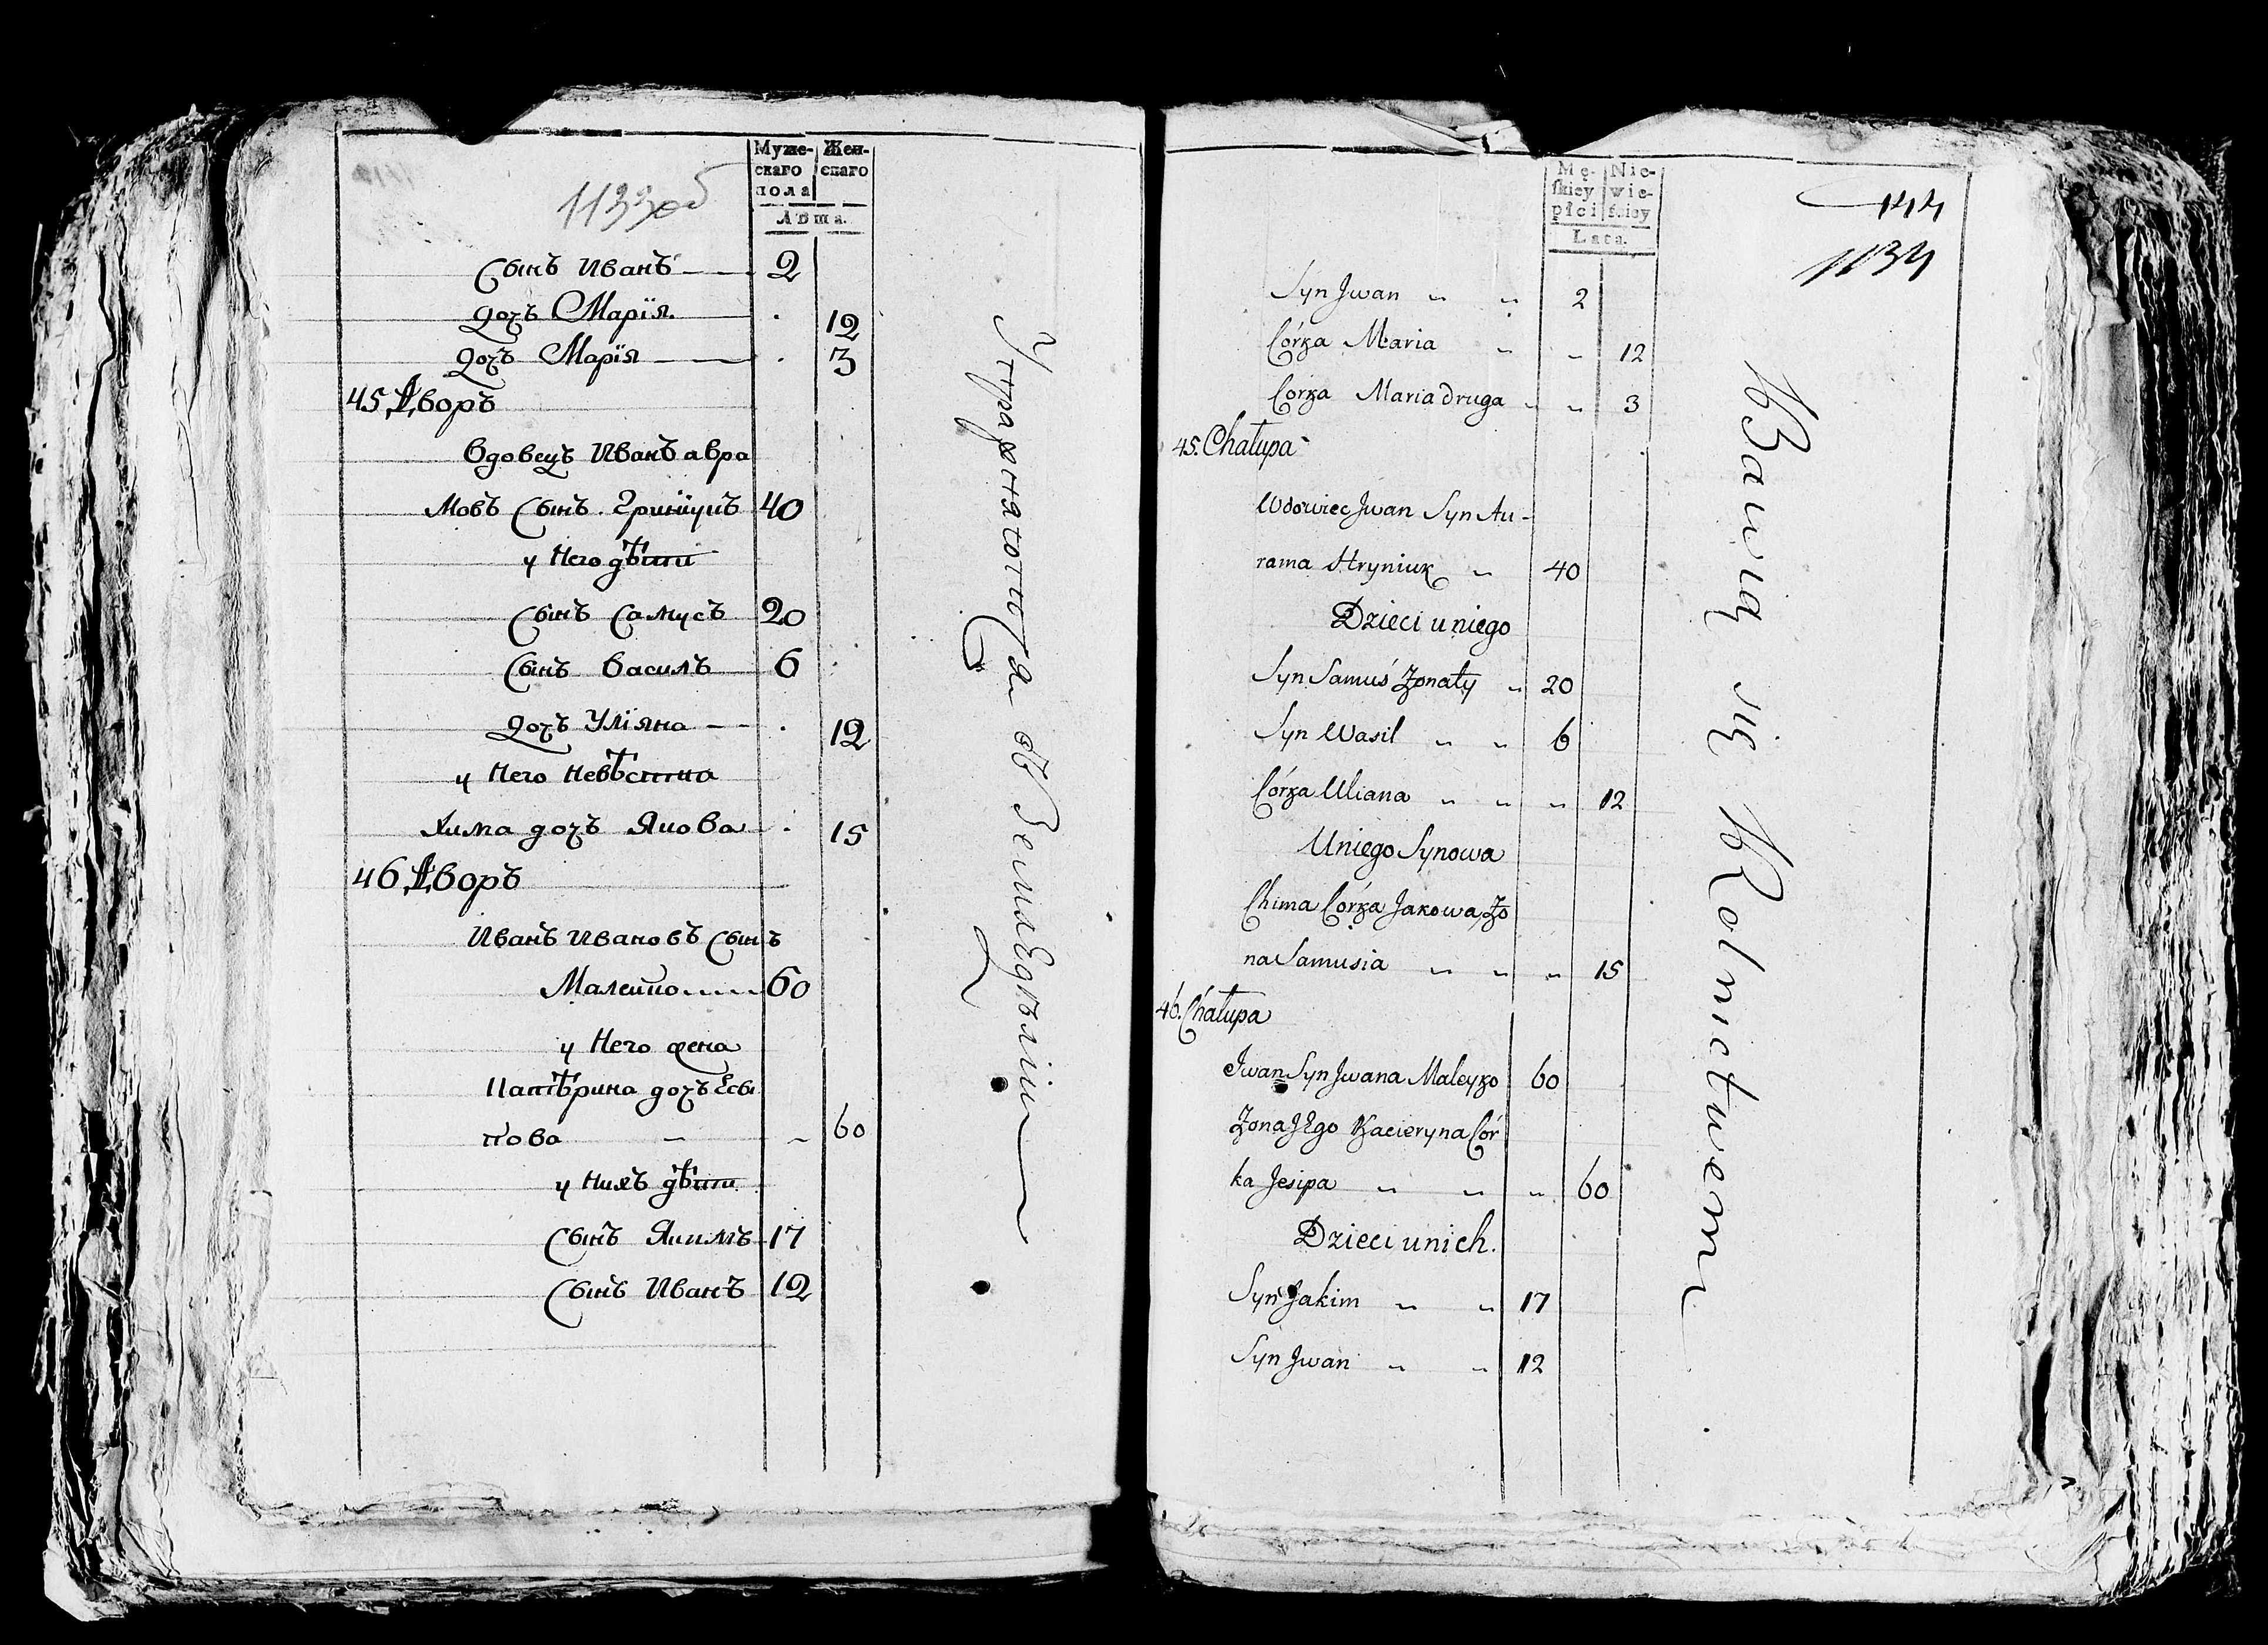 1133об
Муже-
скаго
пола
Жен-
скаго
Лѣта.
Сынъ Иванъ 2
дочь Марїя. 12
дочь Марїя 3
45 Дворъ
Вдовецъ Иванъ Авра
мовъ Сынъ Гринїукъ 40
у Него дѣти
Сынъ Самусь 20
Сынъ Василь 6
дочь Улїяна 12
у Него Невѣстка
Хима дочь Якова 15
46 Дворъ
Иванъ Ивановъ Сынъ
Малейко 60
у Него жена
Катѣрина дочь Еси
пова 60
у Нихъ дѣти
Сынъ Якимъ 17
Сынъ Иванъ 12
Упражняются въ Земледѣлїи
Mę-
skiey
płci
Nie-
wie-
ściey
Lata.
144
1134
Syn Jwan 2
Córka Maria 12
Córka Maria druga 3
45. Chałupa
Wdowiec Jwan Syn Au-
rama Hryniuk 40
Dzieci u niego
Syn Samuś Żonaty 20
Syn Wasil 6
Córka Uliana 12
U niego Synowa
Chima Córka Jakowa Żo
na Samusia 15
46. Chałupa
Jwan Syn Jwana Maleyko 60
Żona Jego Kacieryna Cór
ka Jesipa 60
Dzieci u nich.
Syn Jakim 17
Syn Jwan 12
Bawią się Rolnictwem